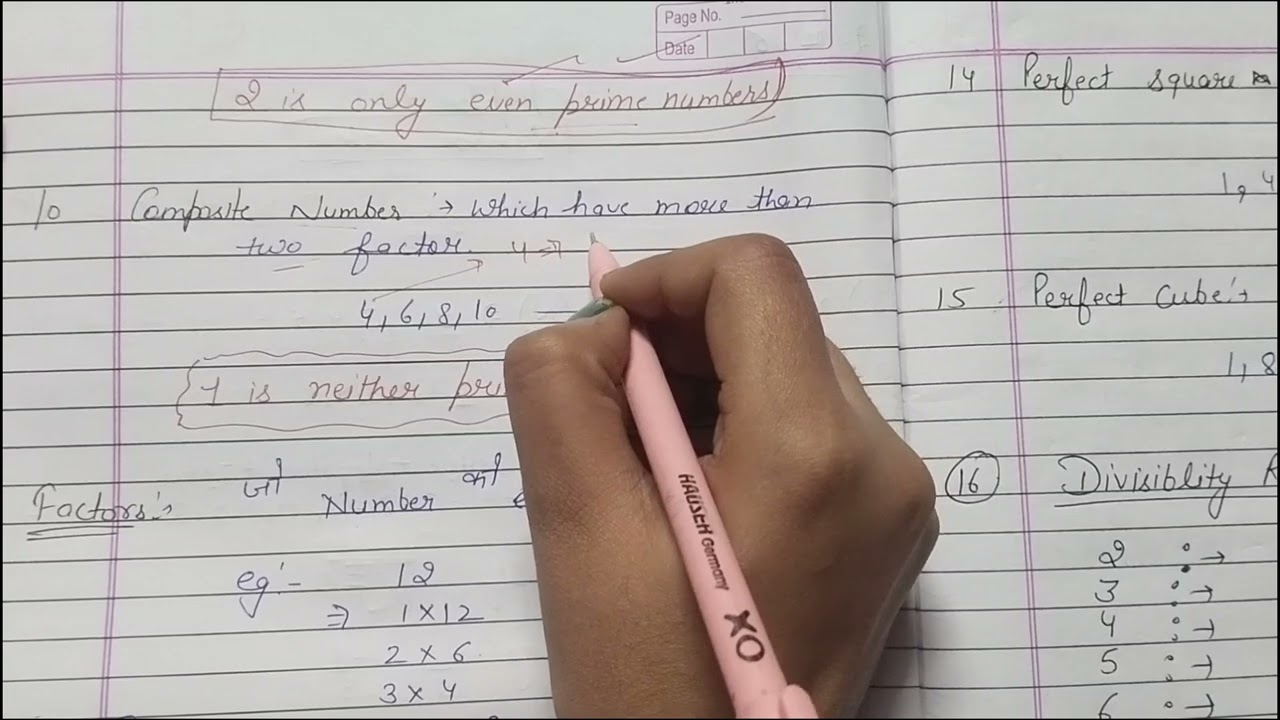 Page No.
Date
2 is only even prime numbers
10 Composite Number :→ Which have more than
two factor. 4 ⇒
4, 6, 8, 10
1 is neither
Factors:- जो Number को
eg:- 12
⇒ 1 × 12
2 × 6
3 × 4
14 Perfect square
1, 4
15 Perfect Cube:→
1, 8
16 Divisiblity
2 :→
3 :→
4 :→
5 :→
6 :→
HAUSER Germany XO